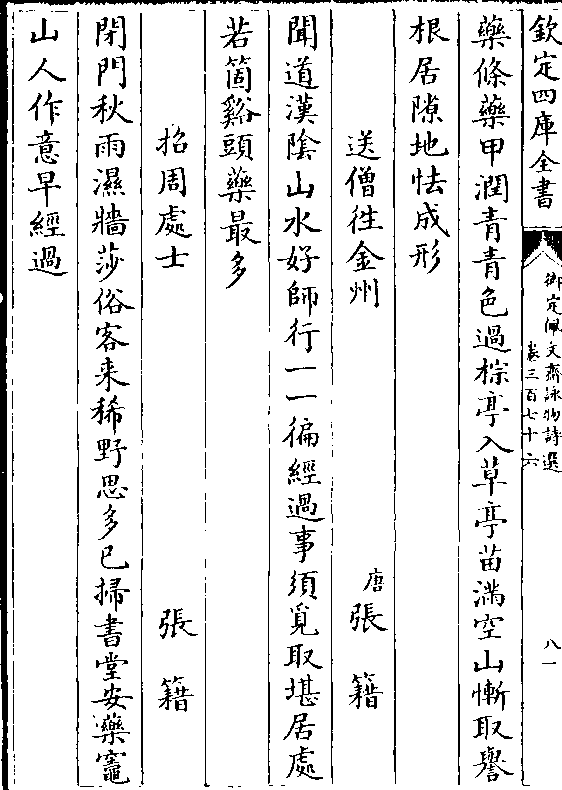 欽定四庫全書
御定佩文齋詠物詩選
卷三百七十六
八一
藥條藥甲潤青青色過棕亭入草亭苗滿空山慚取譽
根居隙地怯成形
送僧徃金州
唐張籍
聞道漢陰山水好師行一一徧經過事須覓取堪居處
若箇谿頭藥最多
招周處士
張籍
閉門秋雨濕牆莎俗客来稀野思多已掃書堂安藥竈
山人作意早經過